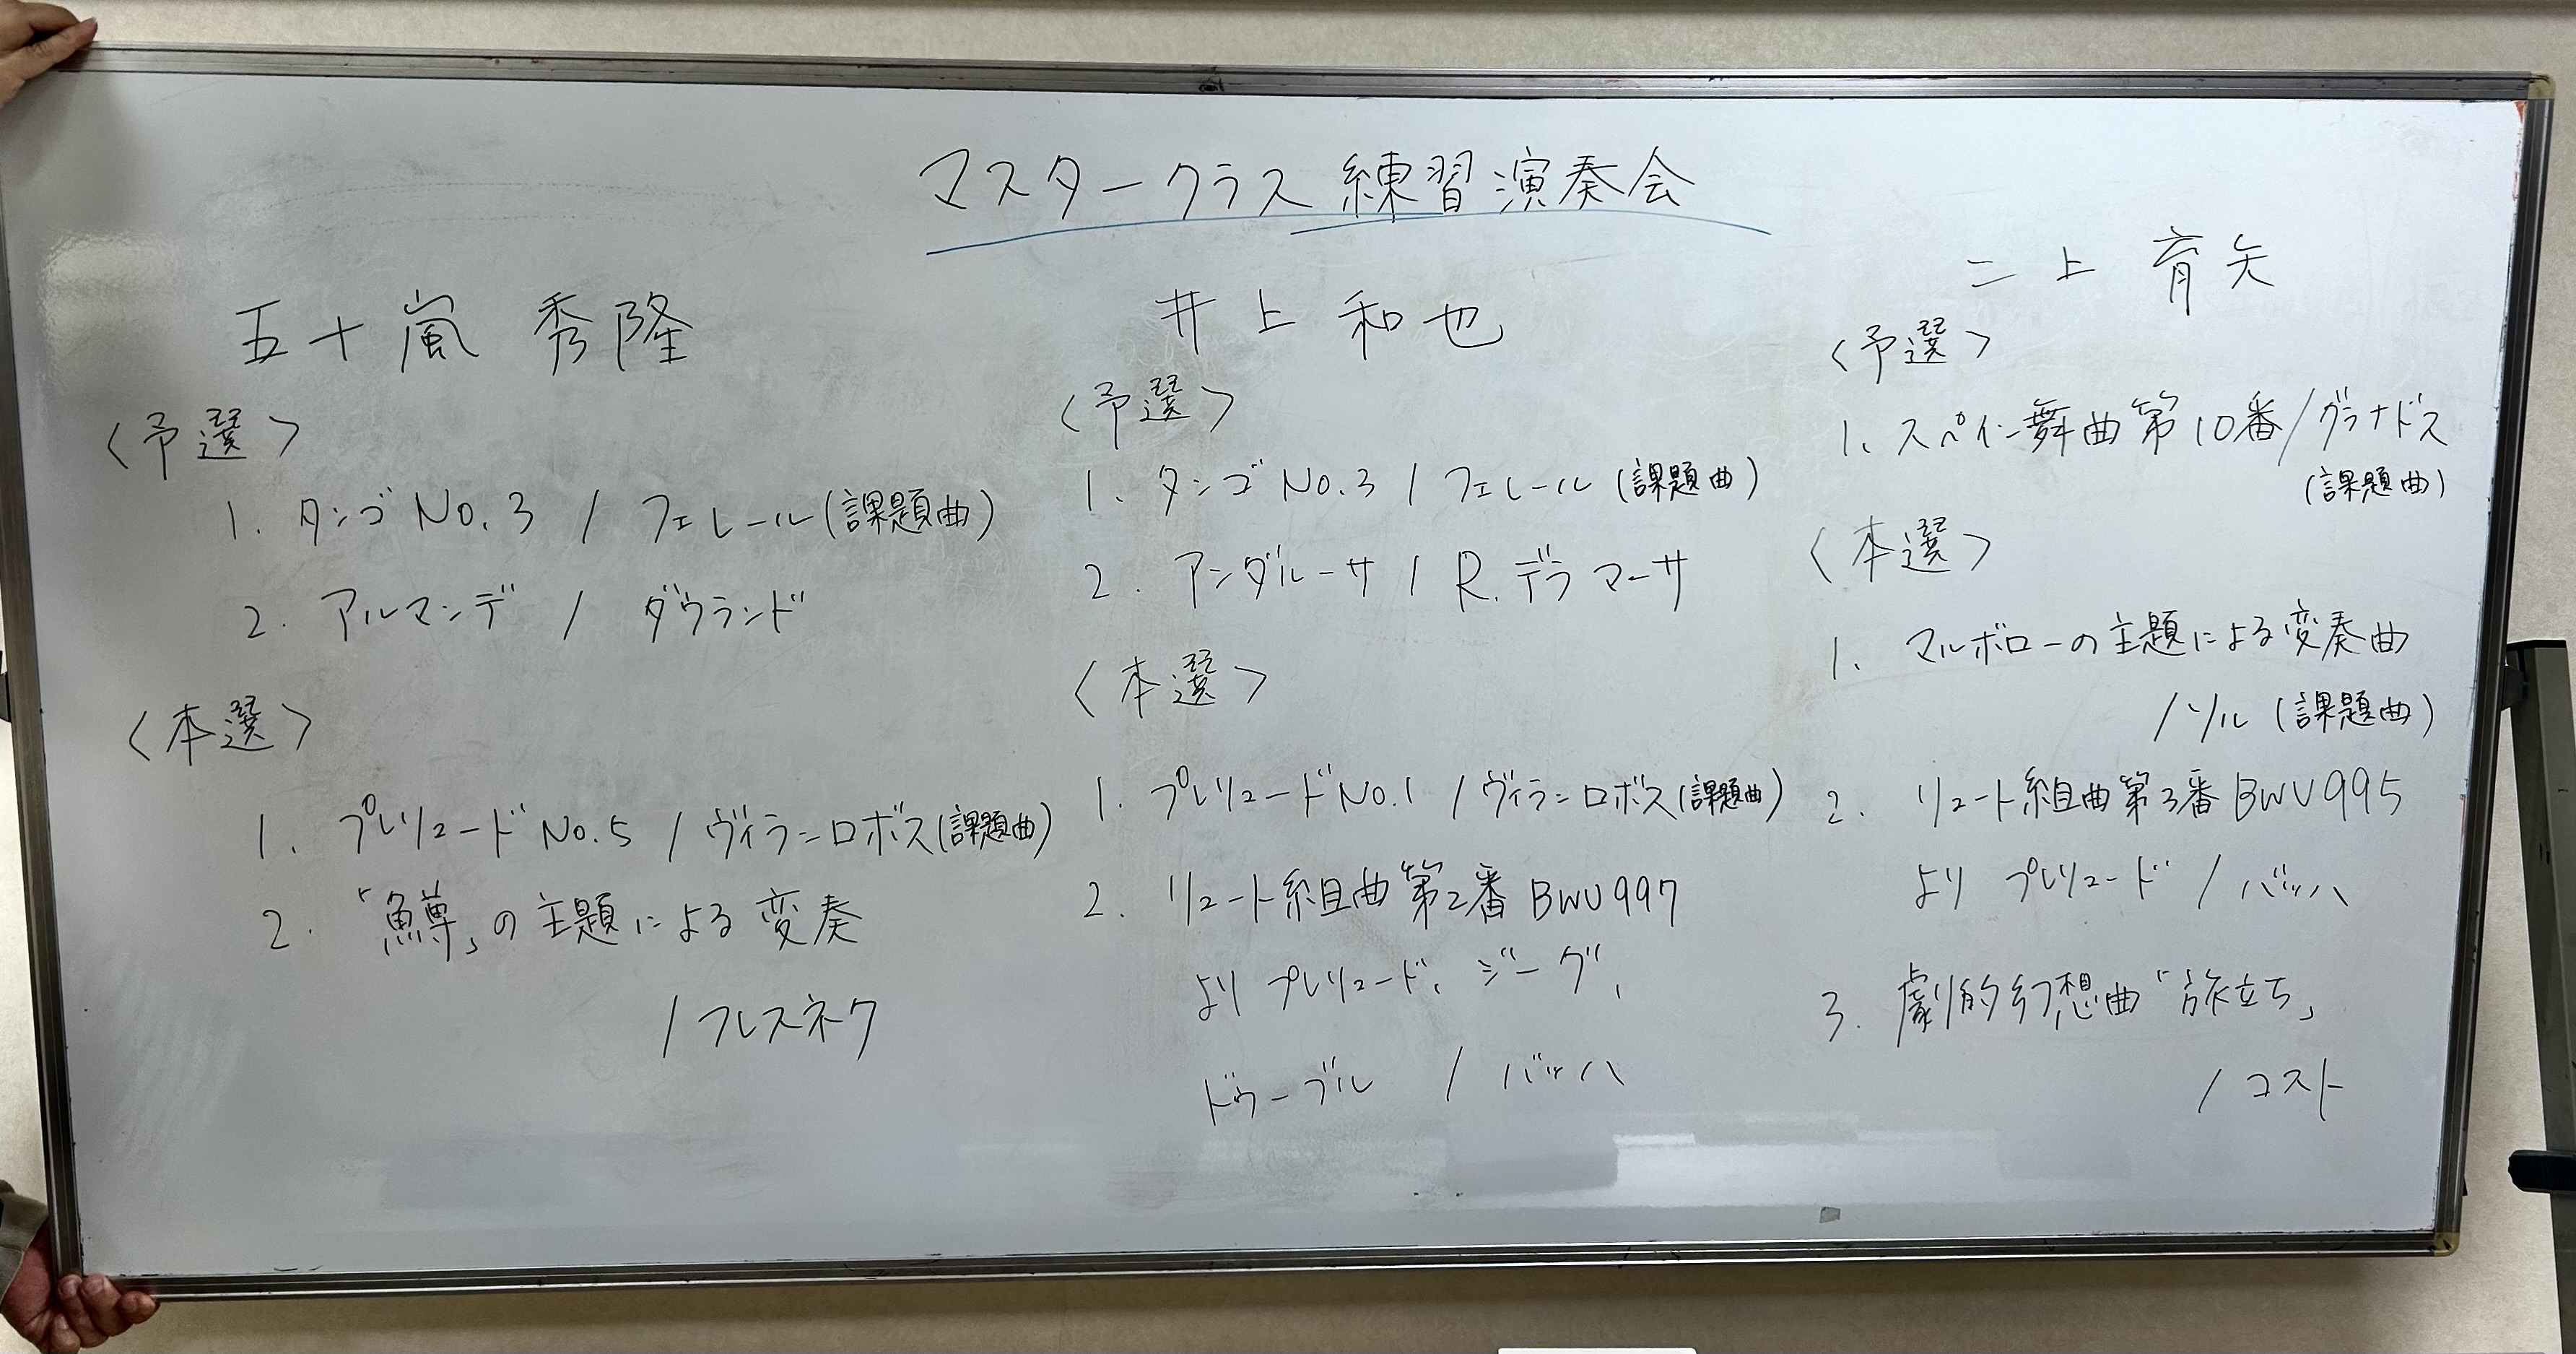 マスタークラス 練習演奏会
五十嵐 秀隆
〈予選〉
1. タンゴ No.3 / フェレール(課題曲)
2. アルマンデ / ダウランド
〈本選〉
1. プレリュード No.5 / ヴィラ=ロボス(課題曲)
2. 「鱒」の主題による変奏
/ フレスネク
井上 和也
〈予選〉
1. タンゴ No.3 / フェレール (課題曲)
2. アンダルーサ / R. デラ マーサ
〈本選〉
1. プレリュード No.1 / ヴィラ=ロボス(課題曲)
2. リュート組曲 第2番 BWV997
より プレリュード、ジーグ、
ドゥーブル / バッハ
二上 育矢
〈予選〉
1. スペイン舞曲 第10番 / グラナドス
(課題曲)
〈本選〉
1. マルボローの主題による変奏曲
/ ソル (課題曲)
2. リュート組曲第3番 BWV995
より プレリュード / バッハ
3. 劇的幻想曲「旅立ち」
/ コスト